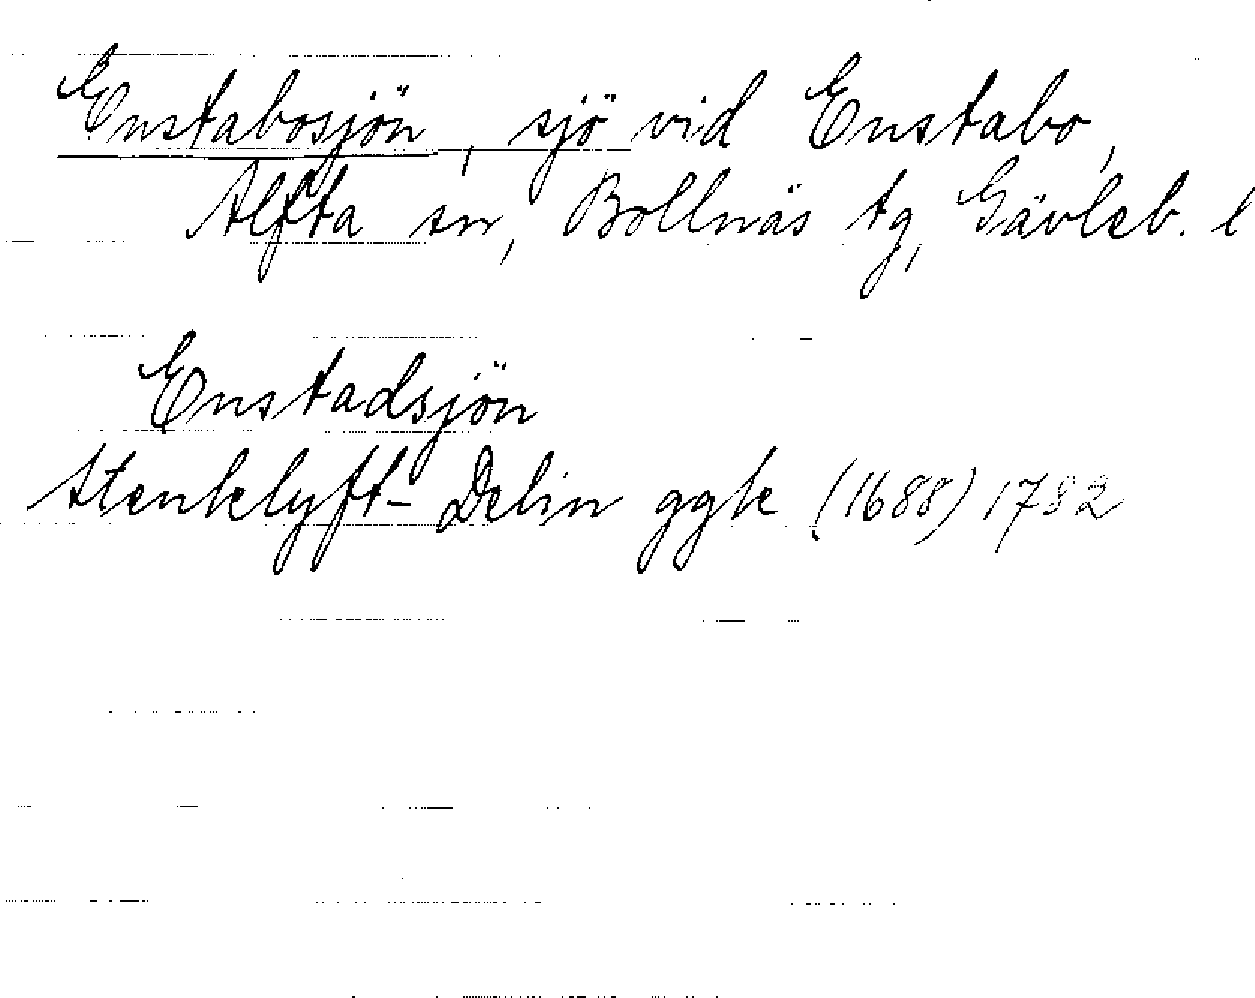 Enstabosjön, sjö vid Enstabo,
Alfta sn, Bollnäs tg, Gävleb. l
Enstadsjön
Stenklyft-Delin ggk (1688) 1782